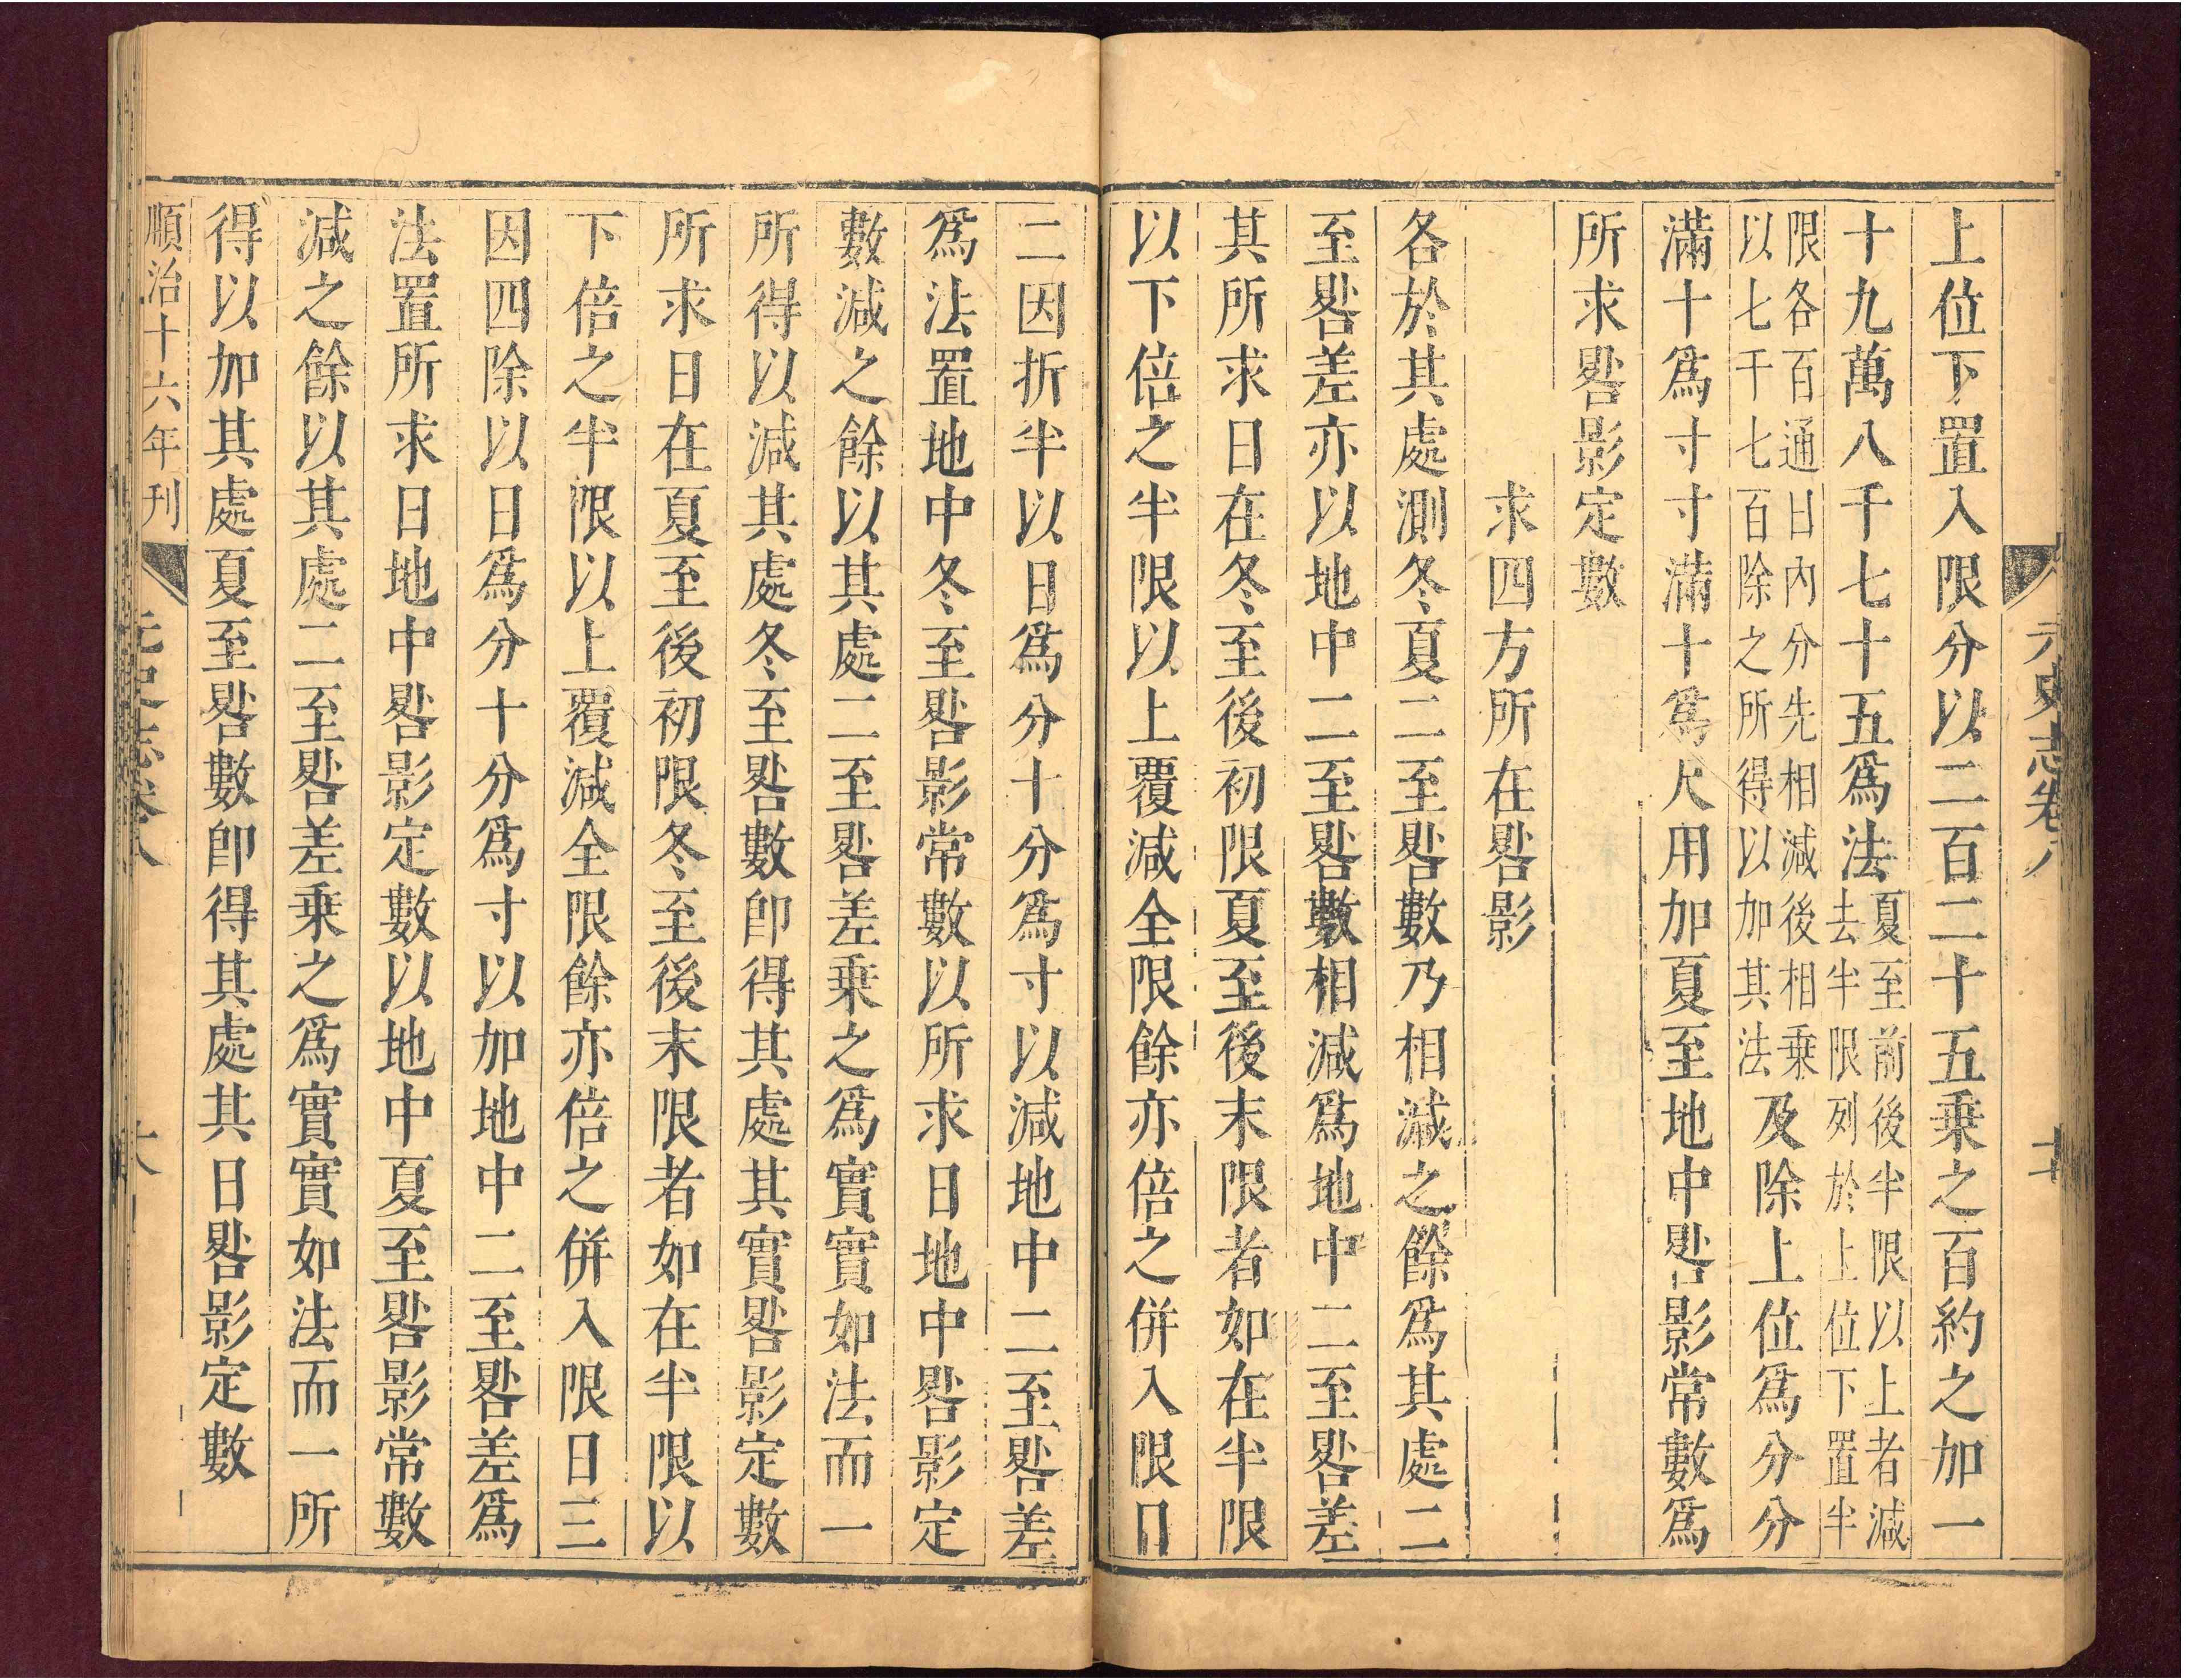 元史志卷八
上位下置入限分以二百二十五乗之百約之加一
十九萬八千七十五爲法夏至前後半限以上者減
去半限列於上位下置半
限各百通日內分先相減後相乗
以七千七百除之所得以加其法及除上位爲分分
滿十爲寸寸滿十爲尺用加夏至地中晷影常數爲
所求晷影定數
求四方所在晷影
各於其處測冬夏二至晷數乃相減之餘爲其處二
至晷差亦以地中二至晷數相減爲地中二至晷差
其所求日在冬至後初限夏至後末限者如在半限
以下倍之半限以上覆減全限餘亦倍之併入限日
二因折半以日爲分十分爲寸以減地中二至晷差
爲法置地中冬至晷影常數以所求日地中晷影定
數減之餘以其處二至晷差乗之爲實實如法而一
所得以減其處冬至晷數卽得其處其實晷影定數
所求日在夏至後初限冬至後末限者如在半限以
下倍之半限以上覆減全限餘亦倍之併入限日三
因四除以日爲分十分爲寸以加地中二至晷差爲
法置所求日地中晷影定數以地中夏至晷影常數
減之餘以其處二至晷差乗之爲實實如法而一所
得以加其處夏至晷數卽得其處其日晷影定數
順治十六年刊
元史志卷八